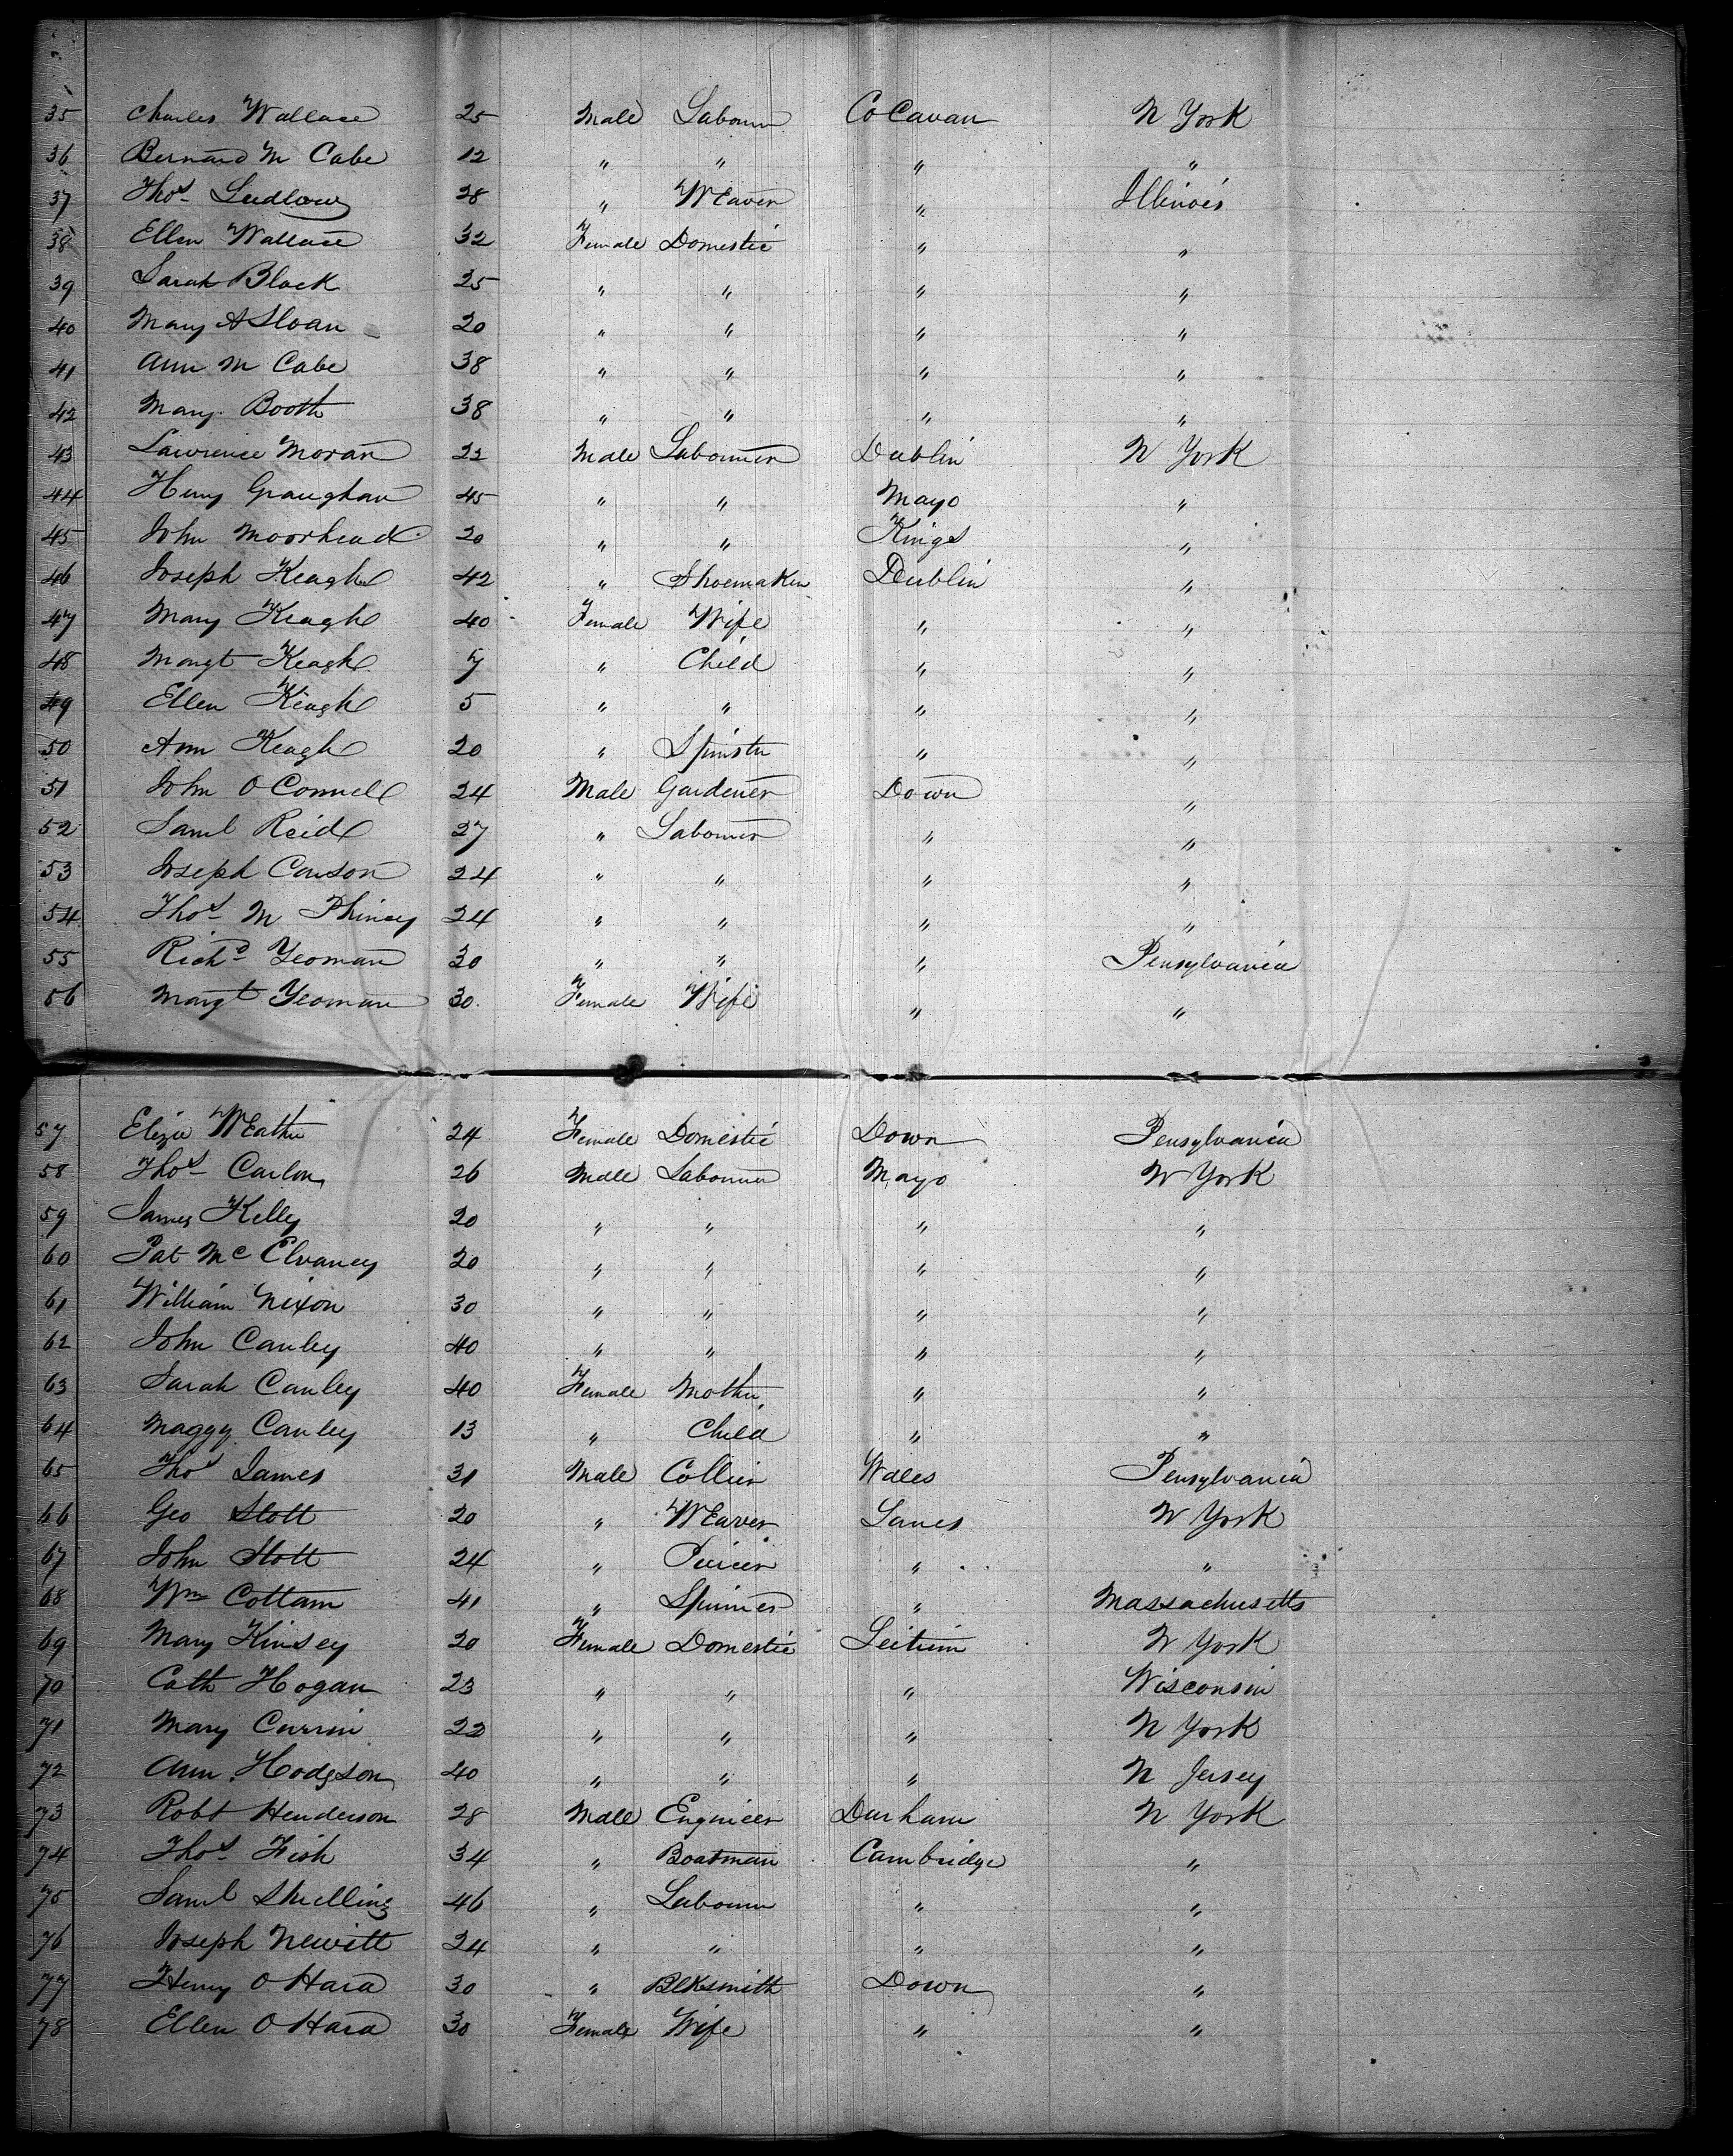 35 Charles Wallace 25 Male Labourer Co Cavan N York
36 Bernard Mc Cabe 12 " " " "
37 Thos Ludlow 28 " Weaver " Illinois
38 Ellen Wallace 32 Female Domestic " "
39 Sarah Black 25 " " " "
40 Mary A Sloan 20 " " " "
41 Ann Mc Cabe 38 " " " "
42 Mary Booth 38 " " " "
43 Lawrence Moran 22 Male Labourer Dublin N York
44 Henry Graughan 45 " " Mayo "
45 John Moorhead 20 " " Kings "
46 Joseph Keagh 42 " Shoemaker Dublin "
47 Mary Keagh 40 Female Wife " "
48 Margt Keagh 7 " Child " "
49 Ellen Keagh 5 " " " "
50 Ann Keagh 20 " Spinster " "
51 John O Connell 24 Male Gardener Down "
52 Saml Reid 27 " Labourer " "
53 Joseph Carson 24 " " " "
54 Thos M Phinney 24 " " " "
55 Richd Yeoman 30 " " " Pensylvania
56 Margt Yeoman 30 Female Wife " "
57 Eliza 24 Female Domestic Down Pensylvania
58 Thos Carlon 26 Male Labourer Mayo N York
59 James Kelly 20 " " " "
60 Pat Mc Elvaney 20 " " " "
61 William Nixon 30 " " " "
62 John Canley 40 " " " "
63 Sarah Canley 40 Female Mother " "
64 Maggy Canley 13 " Child " "
65 Thos James 31 Male Collier Wales Pensylvania
66 Geo Stott 20 " Weaver Lancs N York
67 John Stott 24 " Piecer " "
68 Wm Cottam 41 " Spinner " Massachusetts
69 Mary Kinsey 20 Female Domestic Leitrim N York
70 Cath Hogan 23 " " " Wisconsin
71 Mary Currin 22 " " " N York
72 Ann Hodgson 40 " " " N Jersey
73 Robt Henderson 28 Male Engineer Durham N York
74 Thos Fish 34 " Boatman Cambridge "
75 Saml Snelling 46 " Labourer " "
76 Joseph Newitt 24 " " " "
77 Henry O Hara 30 " Blksmith Down "
78 Ellen O Hara 30 Female Wife " "